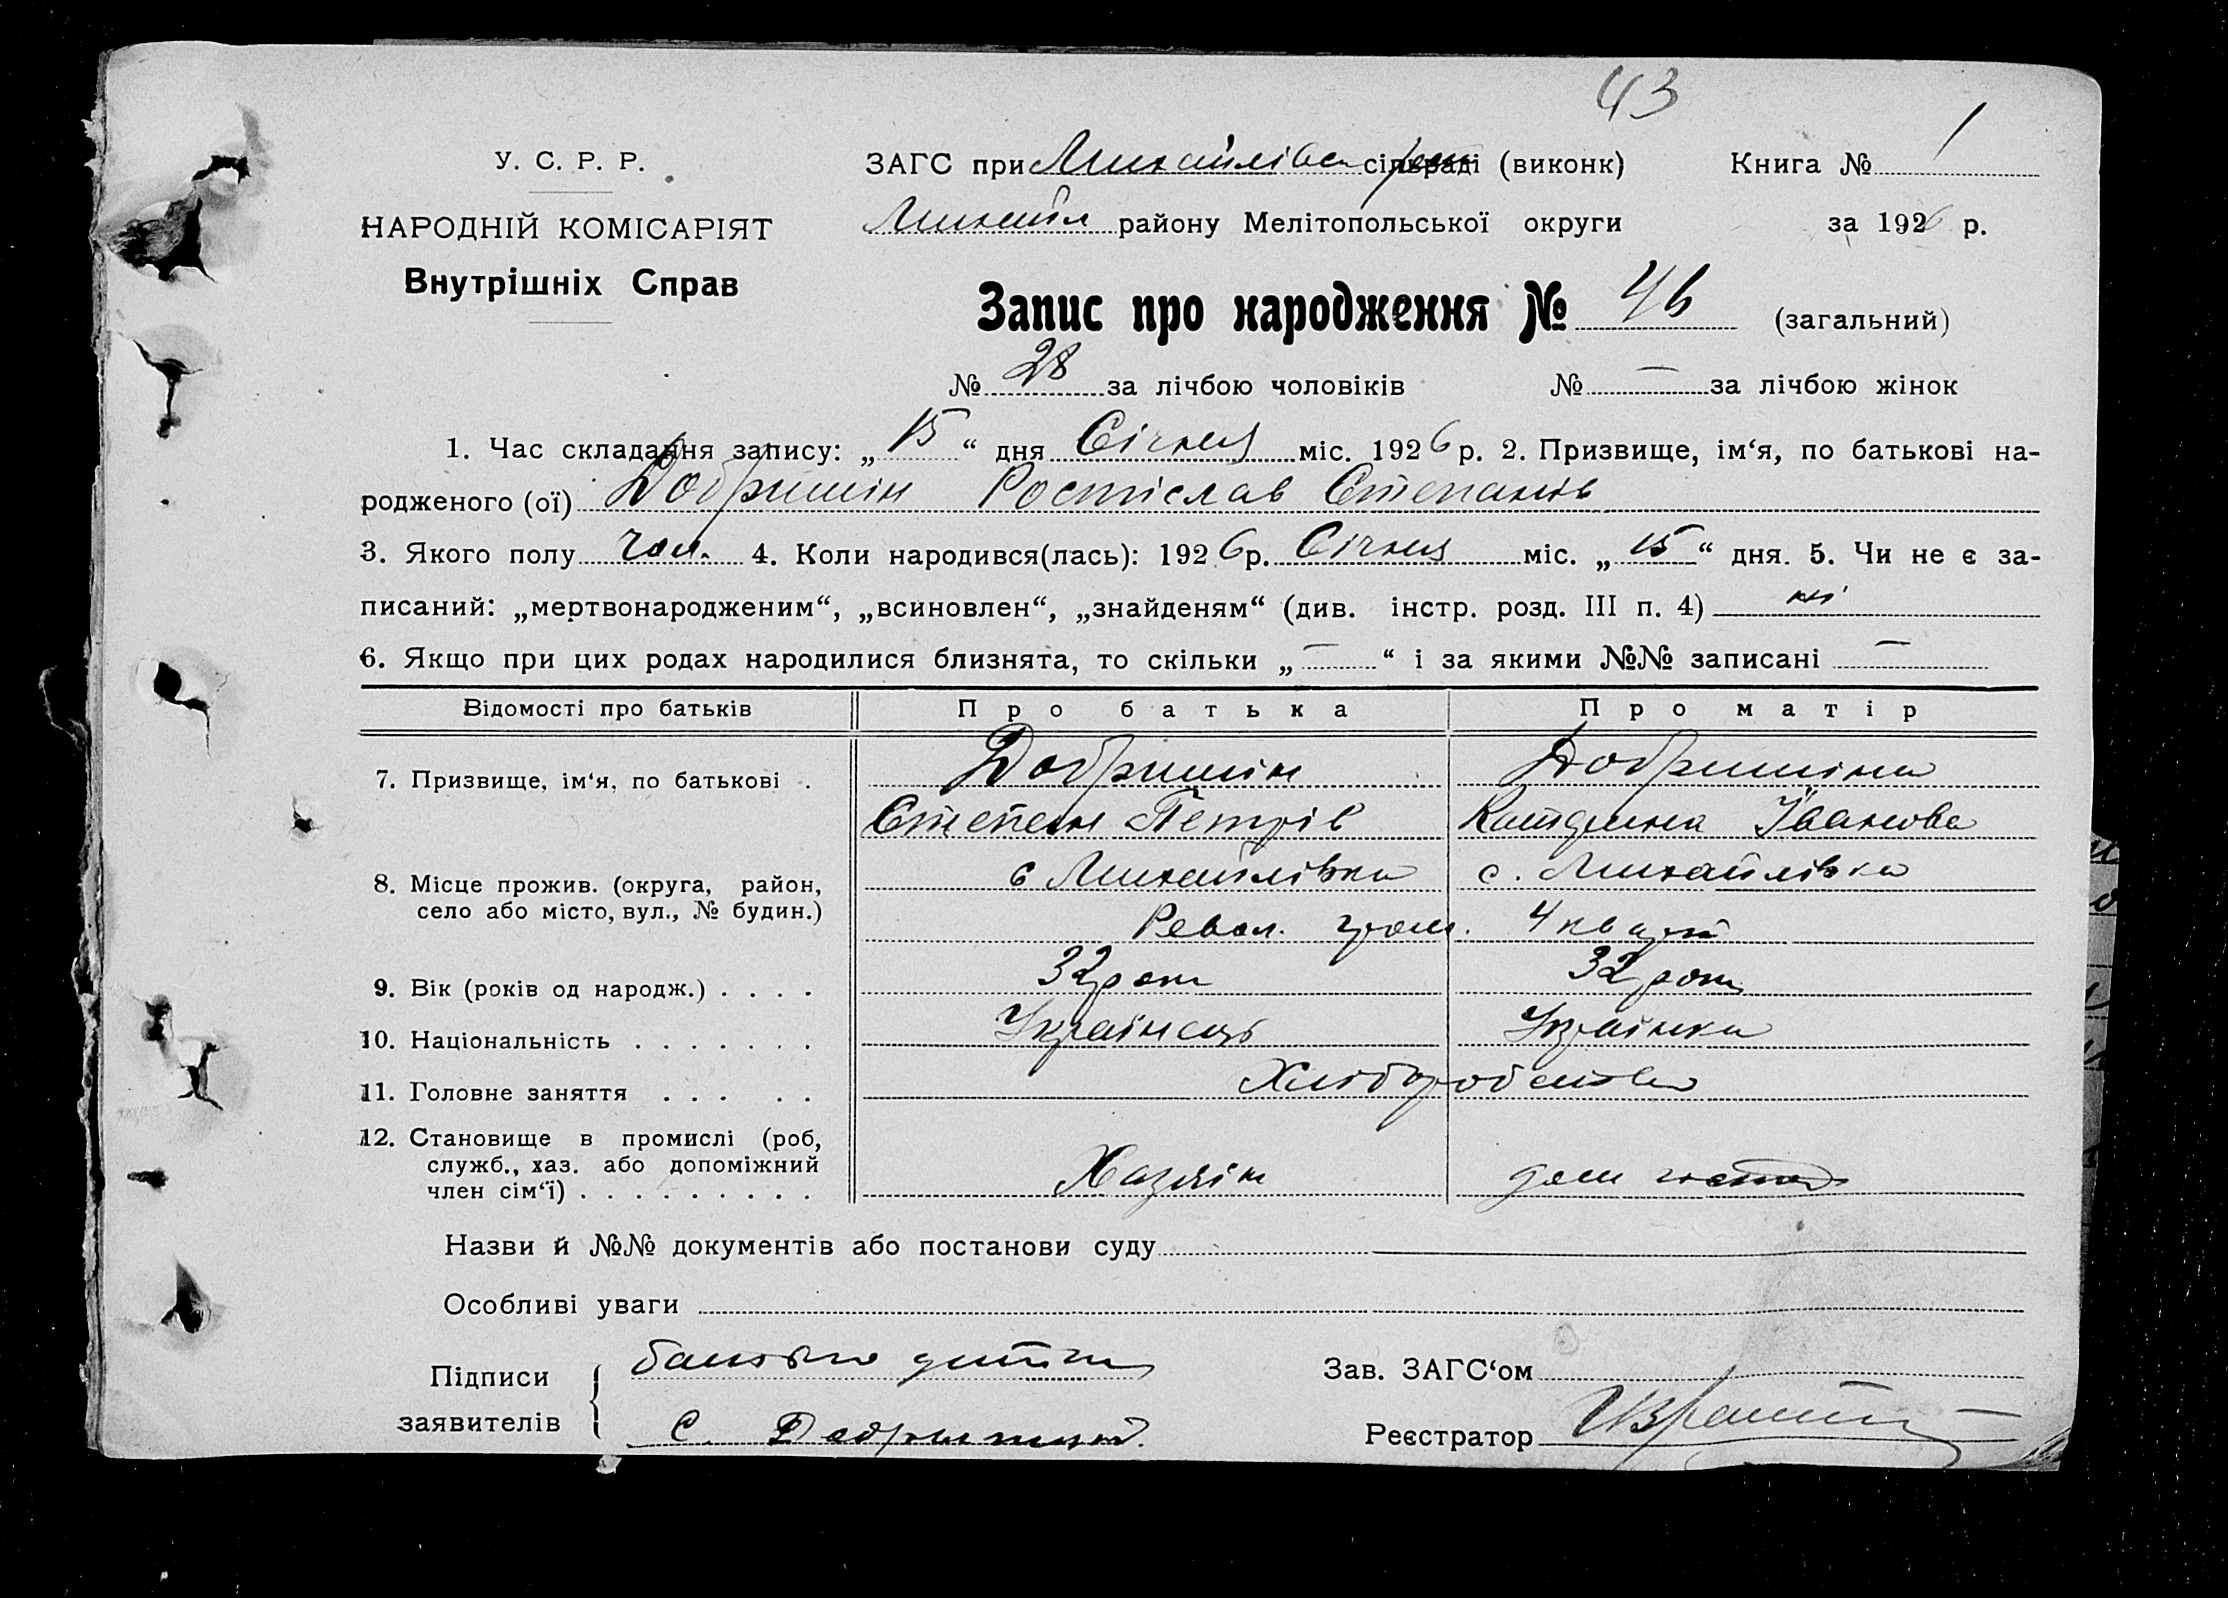 43
У. С. Р. Р.
ЗАГС при Михайлівск сільраді (виконк) Книга № 1
НАРОДНІЙ КОМІСАРІЯТ
Михайл району Мелітопольської округи за 1926 р.
Внутрішніх Справ
Запис про народження № 46 (загальний)
№ 28 за лічбою чоловіків № — за лічбою жінок
1. Час складання запису: „15“ дня Січня міс. 1926 р. 2. Призвище, ім‘я, по батькові на-
родженого (ої) Добришин Ростіслав Степанів
3. Якого полу чол. 4. Коли народився(лась): 1926 р. Січня міс. „15“ дня. 5. Чи не є за-
писаний: „мертвонародженим“, „всиновлен“, „знайденям“ (див. інстр. розд. III п. 4) ні
6. Якщо при цих родах народилися близнята, то скільки „—“ і за якими №№ записані —
Відомості про батьків Про батька Про матір
7. Призвище, ім‘я, по батькові . Добришин Добришина
Степан Петрів Катерина Іванова
8. Місце прожив. (округа, район, с Михайлівка с. Михайлівка
село або місто, вул., № будин.)
Револ. гром. 4 кварт
9. Вік (років од народж.) . . . . 32 рок 32 рок
10. Національність . . . . . . . Українець Українка
11. Головне заняття . . . . . Хліборобство
12. Становище в промислі (роб,
служб., хаз. або допоміжний
член сім‘ї) . . . . . . . . . Хазяїн дом господ
Назви й №№ документів або постанови суду
Особливі уваги
Підписи батько дитини Зав. ЗАГС‘ом
заявителів С. Добрышин Реєстратор